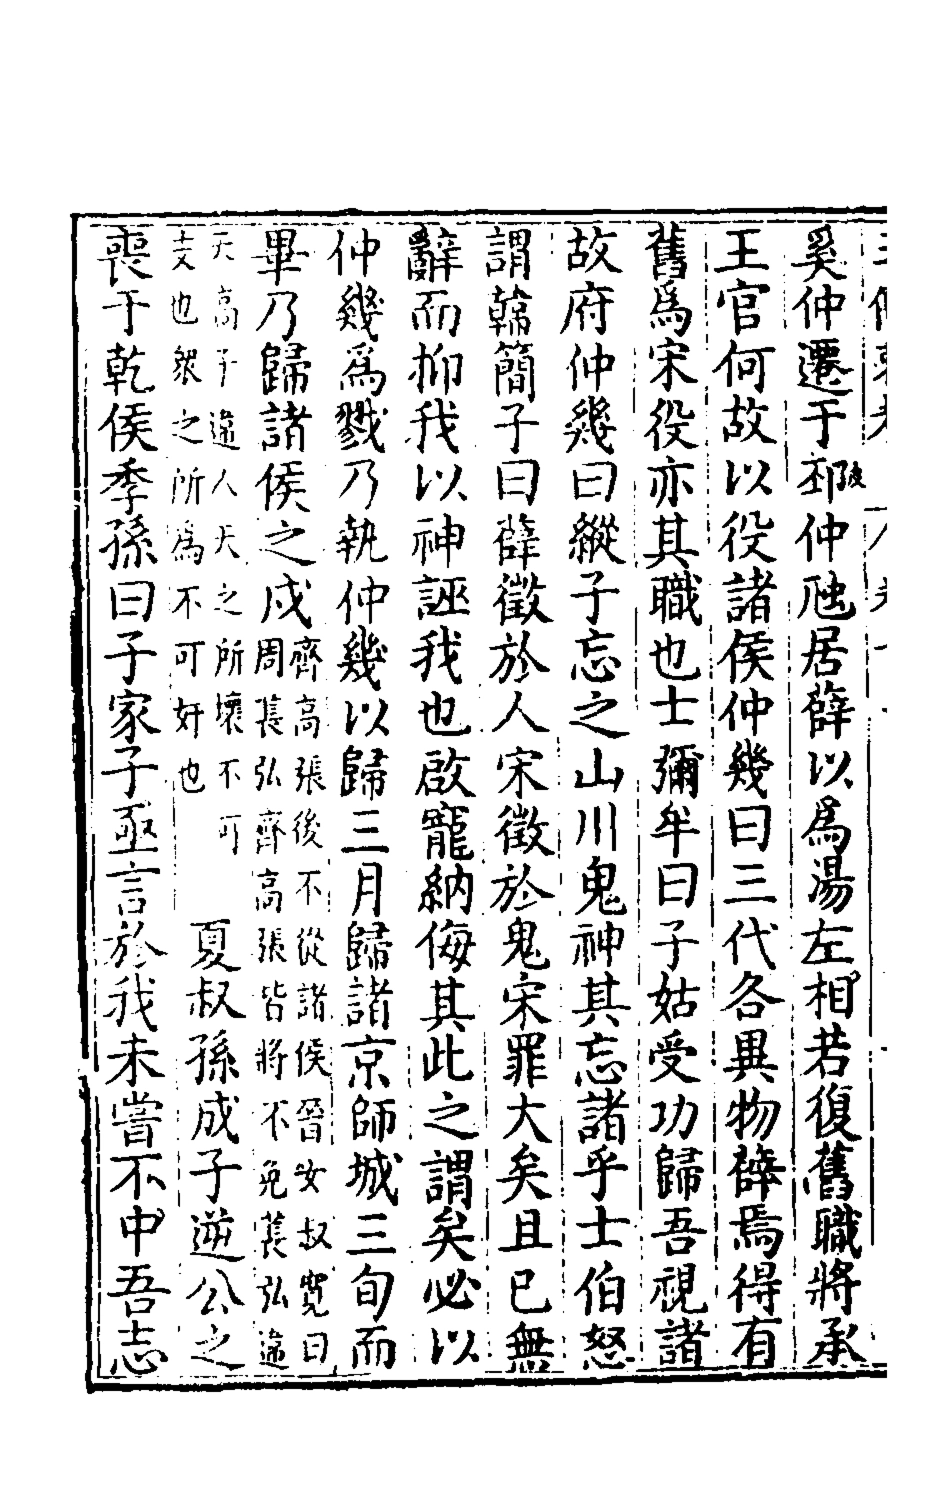 奚仲遷于邳仲虺居薛以爲湯左相若復舊職將承
王官何故以役諸侯仲幾曰三代各異物薛焉得有
舊爲宋役亦其職也士彌牟曰子姑受功歸吾視諸
故府仲幾曰縱子忘之山川鬼神其忘諸乎士伯怒
謂韓簡子曰薛徵於人宋徵於鬼宋罪大矣且已無
辭而抑我以神誣我也啟寵納侮其此之謂矣必以
仲幾爲戮乃執仲幾以歸三月歸諸京師城三旬而
畢乃歸諸侯之戍
齊高張後不從諸侯晉女叔寛曰
周萇弘齊高張皆將不免萇弘違
天高子違人天之所壞不可
支也衆之所爲不可奸也
夏叔孫成子逆公之
喪于乾侯季孫曰子家子亟言於我未嘗不中吾志